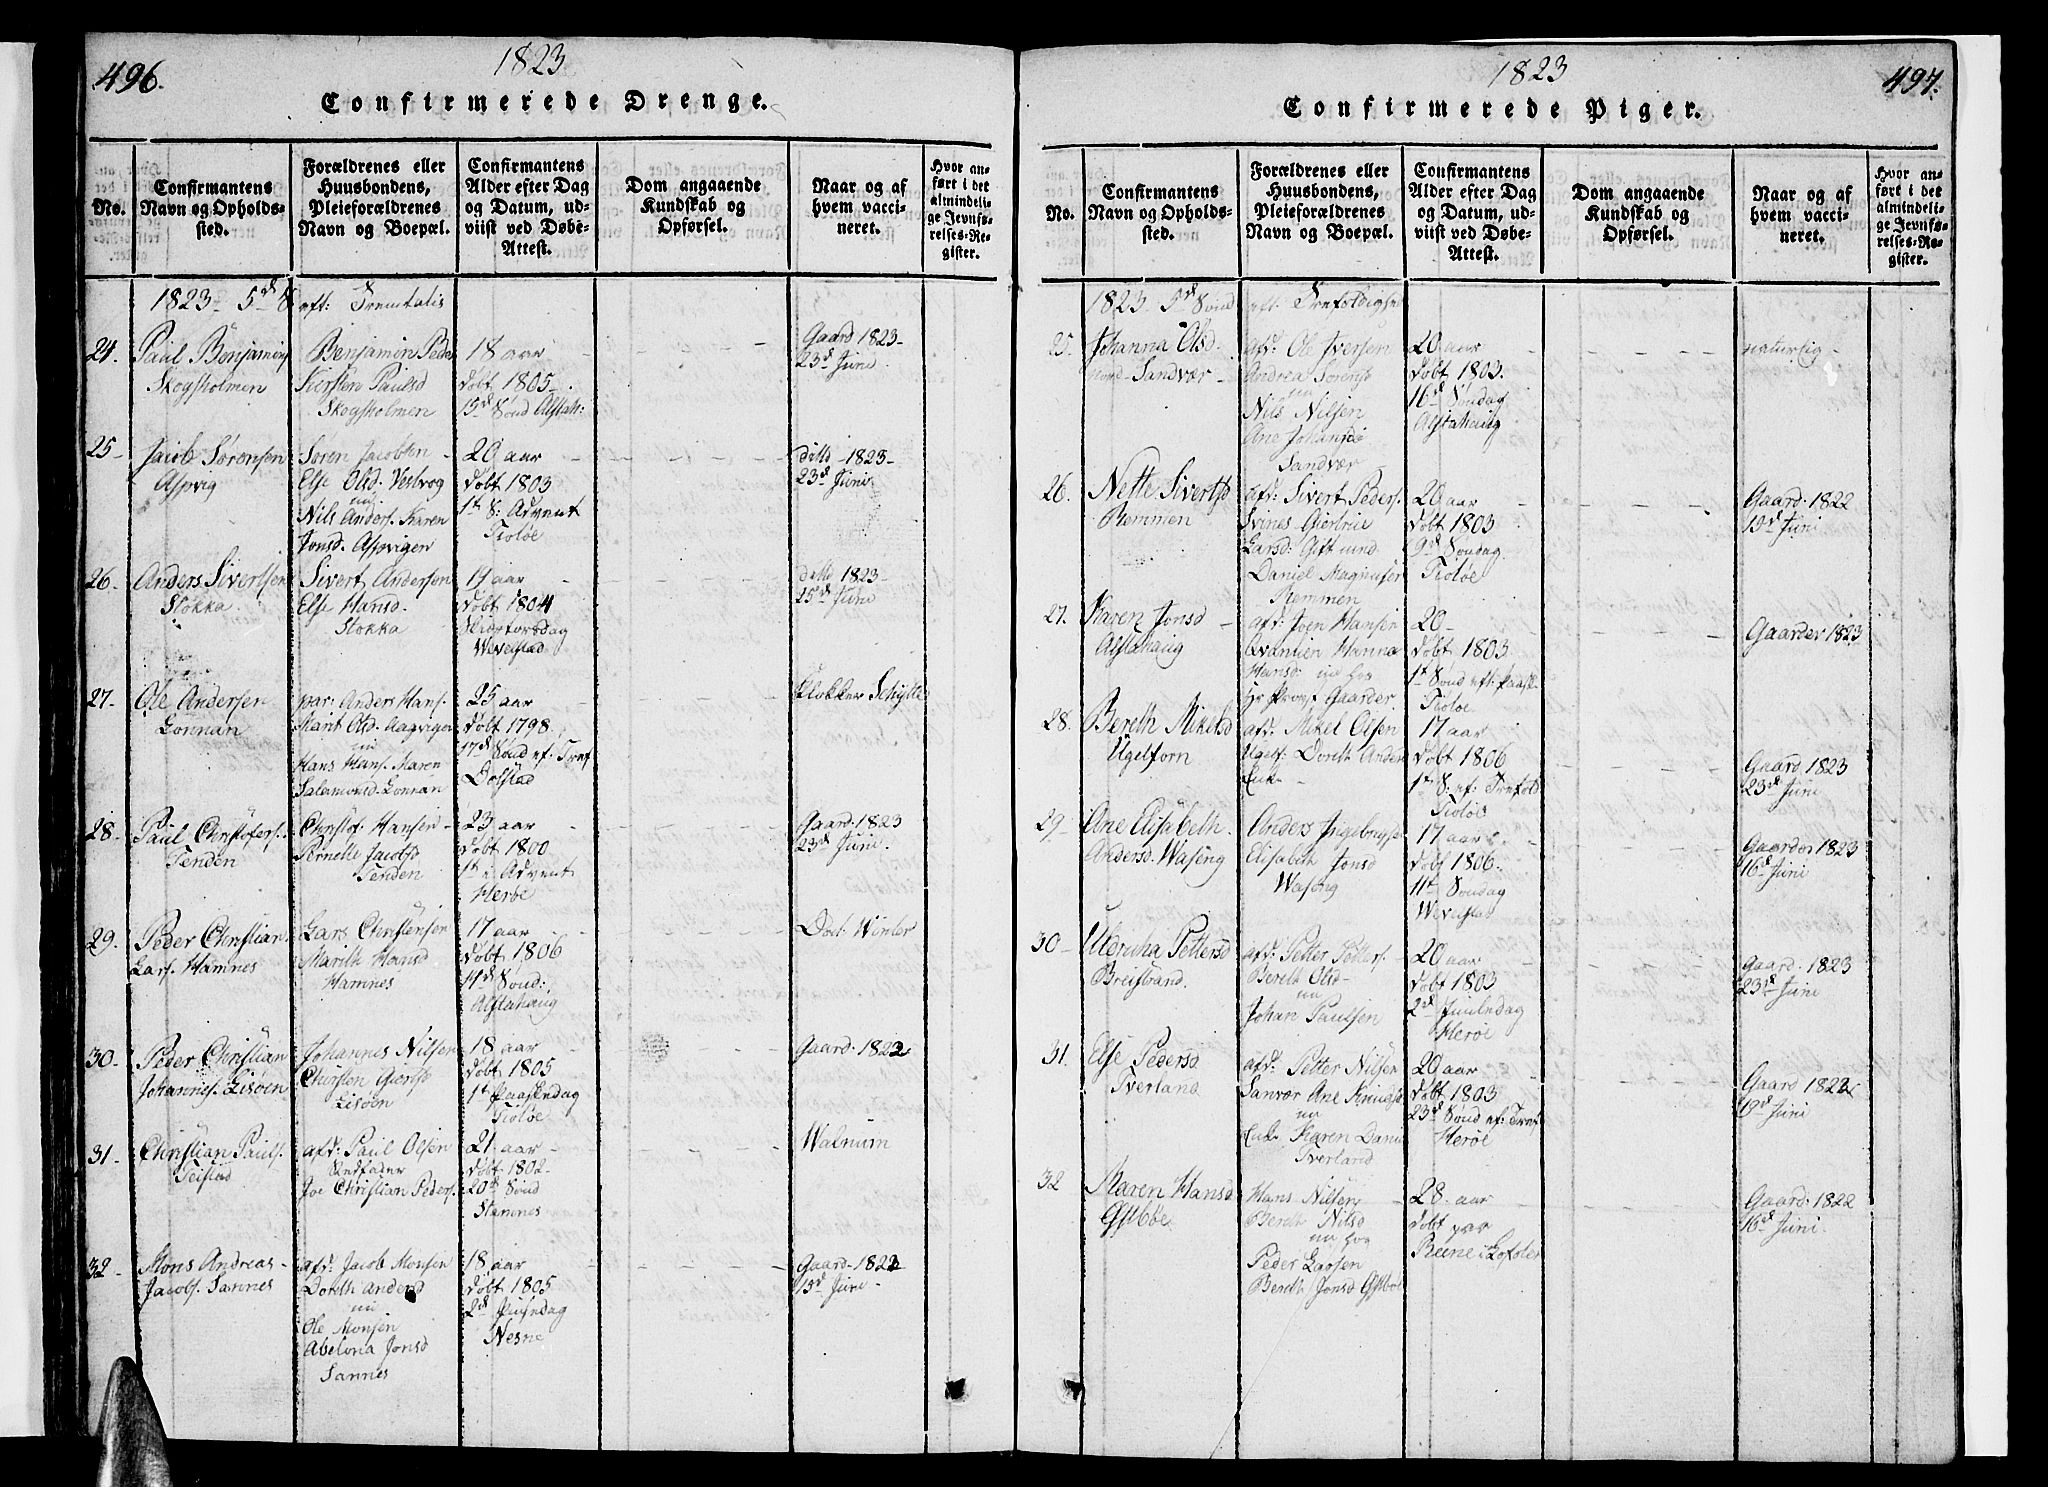 496.
1823
Confirmerede Drenge.
No.
Confirmantens Navn og Opholds-sted.
Forældrenes eller Huusbondens, Pleieforældrenes Navn og Boepæl.
Confirmantens Alder efter Dag og Datum, ud-viist ved Døbe-Attest.
Dom angaaende Kundskab og Opførsel.
Naar og af hvem vacci-neret.
Hvor an-ført i det almindeli-ge Jevnfø-relses-Re-gister.
1823 - 5d S eft: Trinitatis
24.
Paul Benjamins
Skogsholmen
Benjamin Peder
Kiersten Paulsd
Skogsholmen
18 aar
døbt 1805
13d Sønd Alstah:
Gaard 1823
23d Juni
25
Jacob Sørensen
Aspvig
Søren Jacobsen
Else Olsd. Vesvog
nu
Nils Anders. Karen
Jonsd. Aspvigen
20 aar
døbt 1803
1st S: Advent
Tioløe
ditto 1823
23d Juni
26
Anders Sivertsen
Stokka
Sivert Andersen
Else Hansd.
Stokka
19 aar
døbt 1804
Skiærtorsdag
Wevelstad
ditto 1823
25d Juni
27
Ole Andersen
Lonnan
par: Anders Hans.
Marit Olsd. Aagvigen
nu
Hans Hans. Maren
Salamonsd. Lonnan
25 aar
døbt 1798
17d Sønd ef. Tref
Dolstad
Klokker Schytte
28
Paul Christofers.
Tenden
Christof Hansen
Pernelle Jacobsd
Tenden
23 aar
døbt 1800
1st i Advent
Herøe
Gaard 1823
23d Juni
29.
Peder Christian
Lars. Hamnes
Lars Christensen
Marith Hansd
Hamnes
17 aar
døbt 1806
4d Sønd:
Alstahaug
Dod: Winter
30
Peder Christian
Johannes. Lisøen
Johannes Nilsen
Chirsten Giertsd
Lisøen
18 aar
døbt 1805
1st Paaskedag
Tioløe
Gaard. 1822
31
Christian Pauls.
Teistad
afd: Paul Olsen
Christian Peders.
21 aar
døbt 1802
20d Sønd
Stamnes
Walnum
32
Mons Andreas
Jacobs. Sannes
afd: Jacob Monsen
Dorith Andersd
nu
Ole Monsen
Abelona Jonsd
Sannes
18 aar
døbt 1805
2d Juledag
Nesne
Gaard 1822
13d Juni
497.
1823
Confirmerede Piger.
No.
Confirmantens Navn og Opholds-sted.
Forældrenes eller Huusbondens, Pleieforældrenes Navn og Boepæl.
Confirmantens Alder efter Dag og Datum, ud-viist ved Døbe-Attest.
Dom angaaende Kundskab og Opførsel.
Naar og af hvem vacci-neret.
Hvor an-ført i det almindeli-ge Jevnfø-relses-Re-gister.
1823 5d Sønd eft: Trefoldighed
25.
Johanna Olsd
Sandvær
afd: Ole Iversen
Andrea Sørensd
nu
Nils Nilsen
Ane Johansd
Sandvær
20 aar
døbt 1803.
16d Søndag
Alstahaug
naturlig
26.
Nette Sivertsd
Remmen
afd: Sivert Peders.
Svines Giertrue
Larsd: Gift med
Daniel Magnuser
Remmen
20 aar
døbt 1803
9d Søndag
Tioløe
Gaard. 1822
13d Juni
27.
Karen Jonsd
Alstahaug
afd: Joen Hansen
Hanna
Hansd: nu hos
Hr Provst Gaarder
20
døbt 1803
1st Sønd eft: Paaske
Tioløe
Gaarder 1823
28.
Bereth Mikelsd
Ugelforn
afd: Mikel Olsen
Ugelf. Dorith Anders
Enke
17 aar
døbt 1806
1st S: ef: Trefold
Tioløe
Gaard 1823
23d Juni
29
Ane Elisabeth
Andersd. Waseng
Anders Ingebrigts
Elisabeth Jonsd
Waseng
17 aar
døbt 1806.
11t Søndag
Wevelstad
Gaarder 1823
16d Juni
30
Uldricha Pettersd
Breistrand
afd: Petter Petters.
Bereth Olsd
nu
Johan Paulsen
20 aar
døbt 1803
2d Juuledag
Herøe
Gaard. 1823
23d Juni
31.
Else Pedersd
Tverland
afd: Petter Nilsen
Sanvær Ane Knudsd
nu
Enke Karen Dani
Tverland
20 aar
døbt 1803
23d Sønd ef: Tref
Herøe
Gaard 1822
19d Juni
32
Maren Hansd
Hans Nilsen
Bereth Nilsd
nu hos
Peder Larsen
Bereth Jonsd
28 aar
døbt paa
Reine i Lofoten
Gaard. 1822
16d Juni.